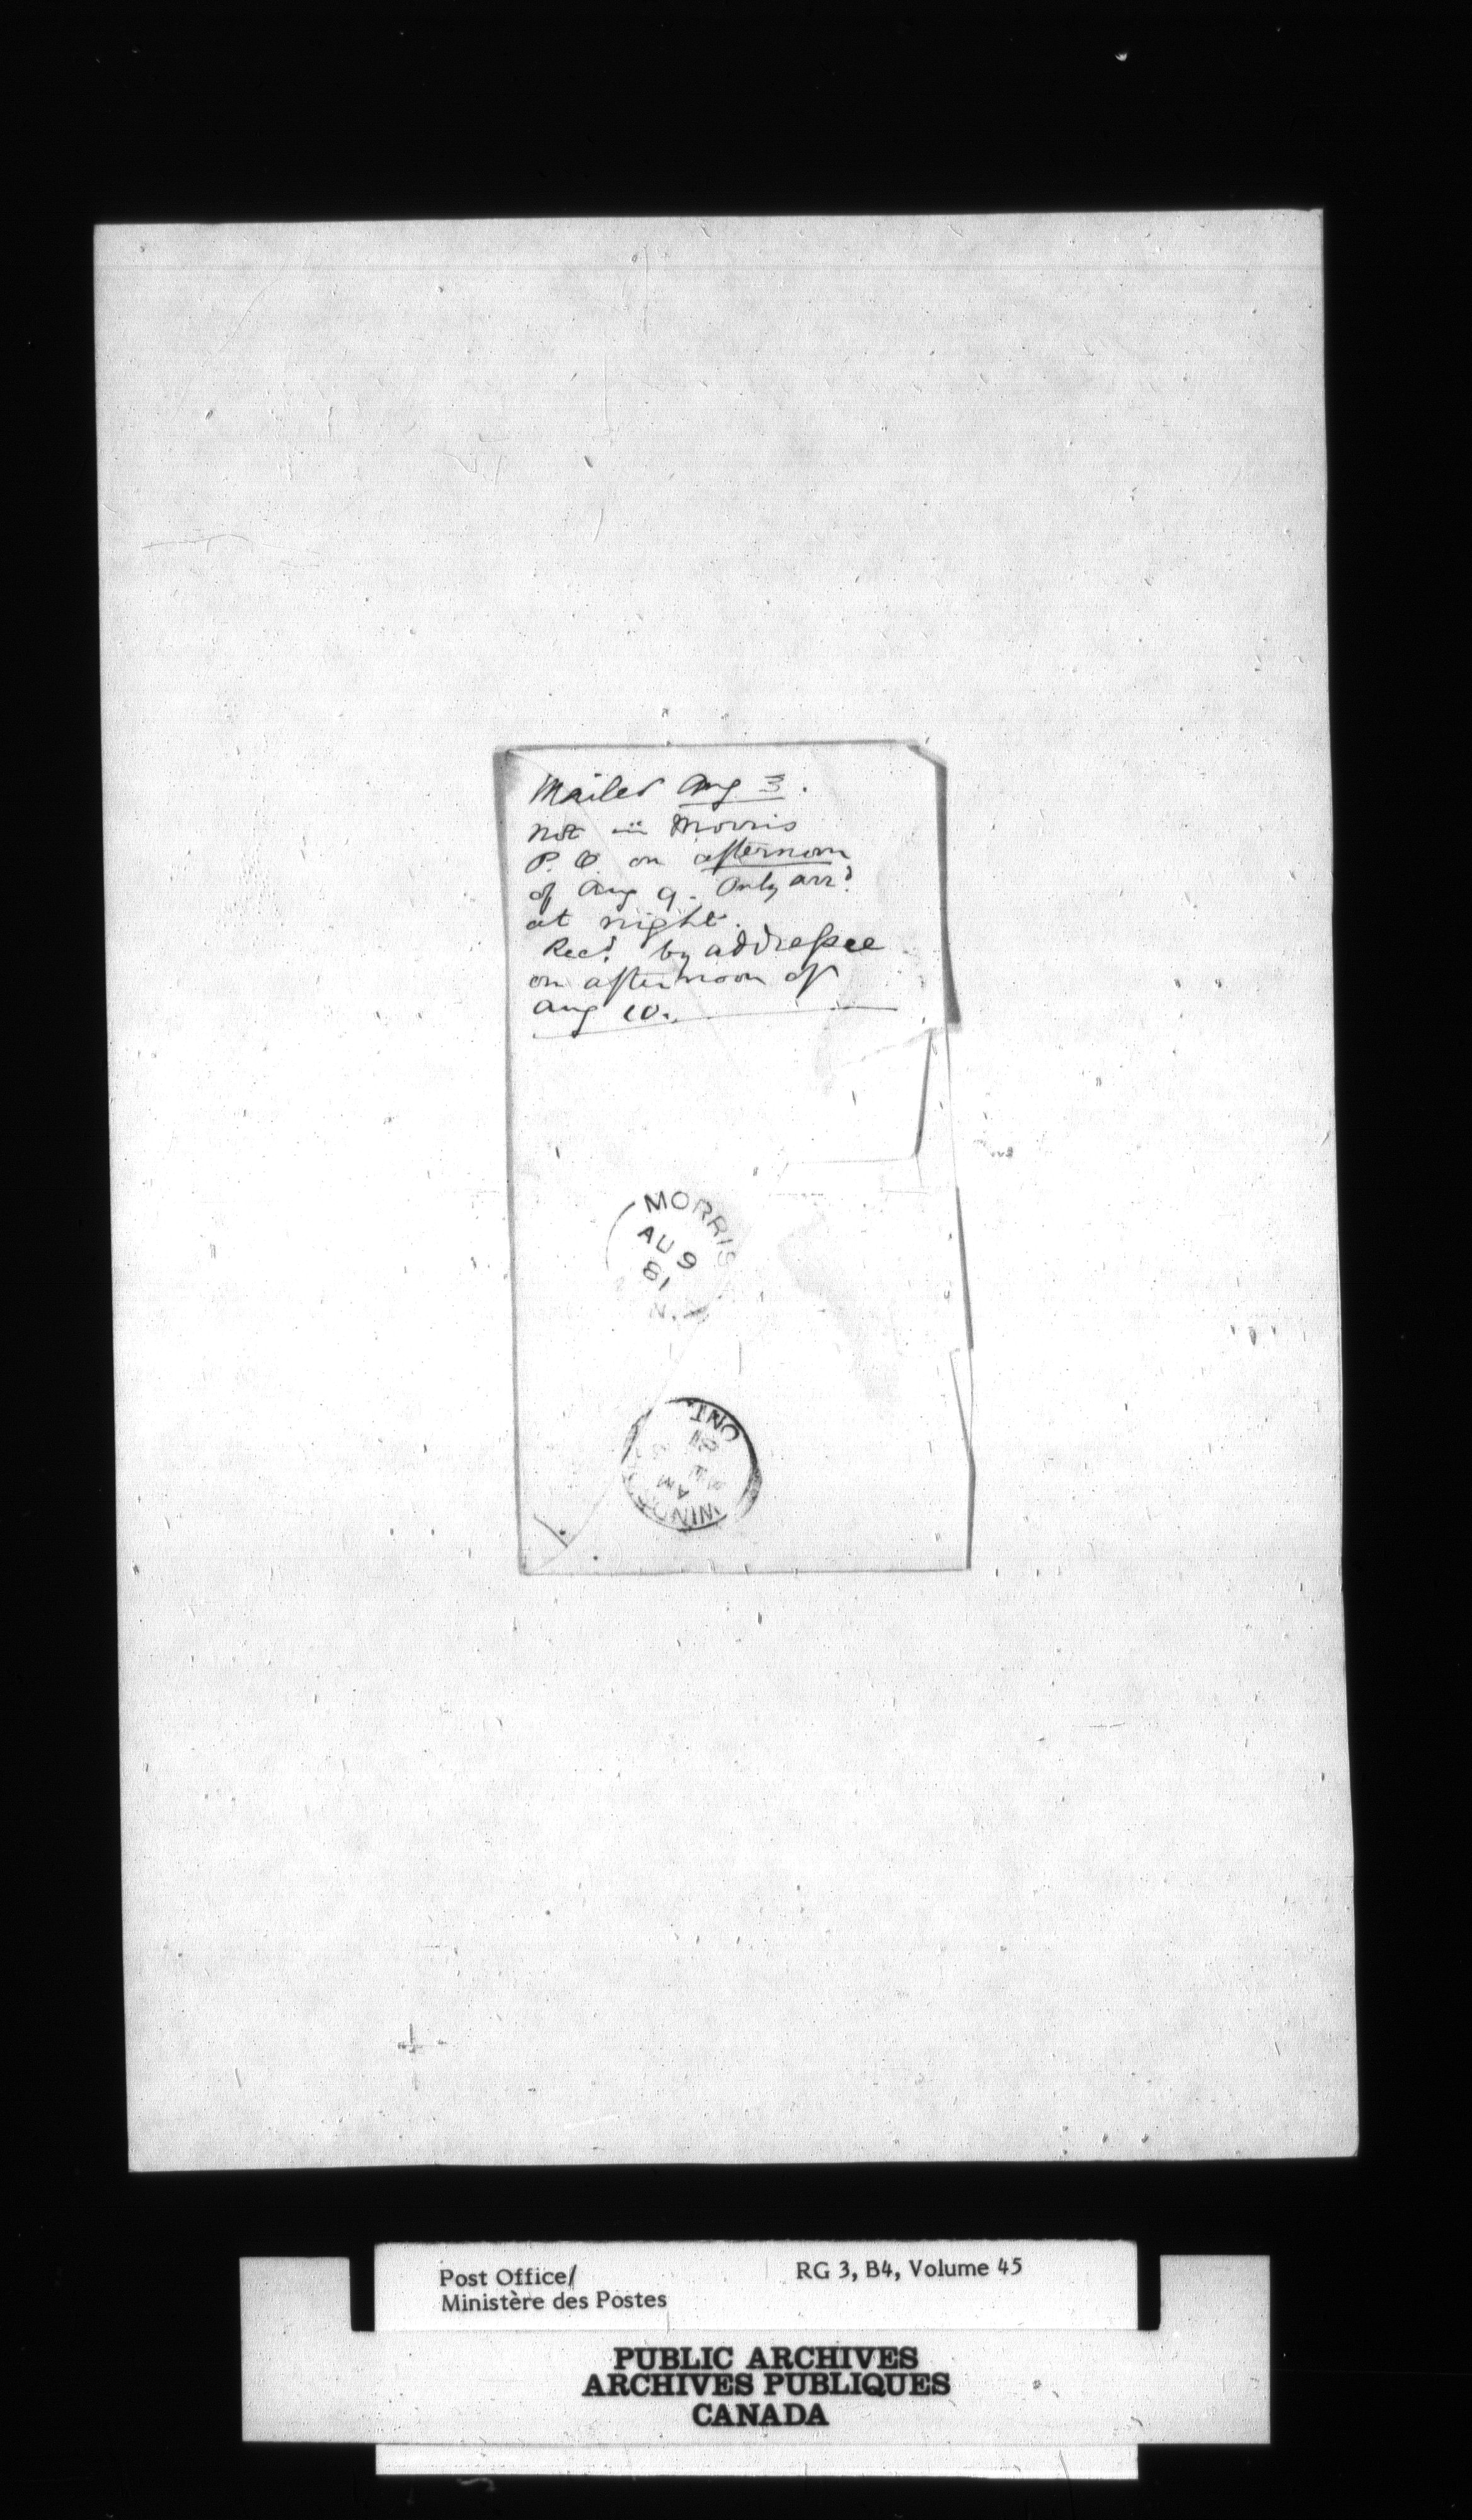 Mailed Aug 3.
not in Morris
P.O. on afternoon
of Aug 9. Only arrd
at night.
Recd by addressee
on afternoon of
Aug 10.
MORRIS
AU 9
81
N.
ONT.
81
AM
WINDSOR
Post Office/
Ministère des Postes
RG 3, B4, Volume 45
PUBLIC ARCHIVES
ARCHIVES PUBLIQUES
CANADA